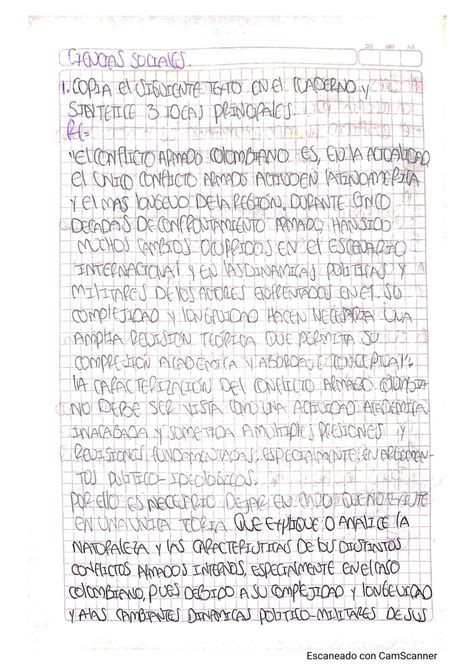 DD MM AA
CIENCIAS SOCIALES.
1. COPIA El SIGUIENTE TEXTO EN El CUADERNO y
SINTETICE 3 IDEAS PRINCIPALES.
R/=
"El CONFlICTO ARMADO COlOMBIANO ES, EN lA ACTUAlIDAD
El UNICO CONFlICTO ARMADO ACTIVO EN lATINOAMERICA
Y El MAS lONGEVO DE lA REGION. DURANTE CINCO
DECADAS DE CONFRONTAMIENTO ARMADO, HAN SIDO
MUCHOS CAMBIOS OCURRIDOS EN El ESCENARIO
INTERNACIONAl Y EN lAS DINAMICAS POlITICAS Y
MIlITARES DE lOS ACTORES ENFRENTADOS EN El. SU
COMPlEJIDAD Y lONGEVIDAD HACEN NECESARIA UNA
AMPlIA REVISION TEORICA QUE PERMITA SU
COMPRESION ACADEMICA Y ABORDAJE CONCEPTUAl".
lA CARACTERIZACIÓN DEl CONFlICTO ARMADO COlOMBIA
NO DEBE SER VISTA COMO UNA ACTIVIDAD ACADEMICA
INACABADA Y SOMETIDA A MUlTIPlES PRESIONES Y
REVISIONES FUNDAMENTADAS, ESPECIAlMENTE, EN ARGUMEN-
TOS POlITICO-IDEOlOGICOS.
POR EllO ES NECESARIO DEJAR EN ClARO QUE NO EXISTE
EN UNA UNICA TEORIA QUE EXPlIQUE O ANAlICE lA
NATURAlEZA Y lAS CARACTERISTICAS DE lOS DISTINTOS
CONFlICTOS ARMADOS INTERNOS, ESPECIAlMENTE EN El CASO
COlOMBIANO, PUES DEBIDO A SU COMPlEJIDAD Y lONGEVIDAD
Y A lAS CAMBIANTES DINAMICAS POlITICO-MIlITARES DE SUS
Escaneado con CamScanner